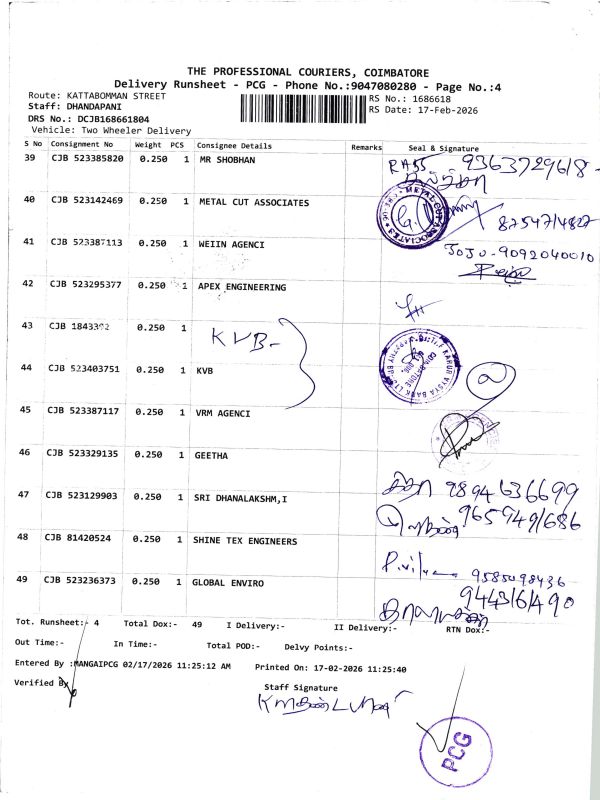 THE PROFESSIONAL COURIERS, COIMBATORE
Delivery Runsheet - PCG - Phone No.:9047080280 - Page No.:4
Route: KATTABOMMAN STREET
RS No.: 1686618
Staff: DHANDAPANI
RS Date: 17-Feb-2026
DRS No.: DCJB168661804
Vehicle: Two Wheeler Delivery
S No Consignment No Weight PCS Consignee Details Remarks Seal & Signature
39 CJB 523385820 0.250 1 MR SHOBHAN 9363729618
40 CJB 523142469 0.250 1 METAL CUT ASSOCIATES
METAL CUT ASSOCIATES
41 CJB 523387113 0.250 1 WEIIN AGENCI JOJO - 9092040010
42 CJB 523295377 0.250 1 APEX ENGINEERING
43 CJB 0.250 1 KVB-
44 CJB 523403751 0.250 1 KVB
KARUR VYSYA BANK LTD
45 CJB 523387117 0.250 1 VRM AGENCI
46 CJB 523329135 0.250 1 GEETHA
47 CJB 523129903 0.250 1 SRI DHANALAKSHM,I 9894636699
48 CJB 81420524 0.250 1 SHINE TEX ENGINEERS
49 CJB 523236373 0.250 1 GLOBAL ENVIRO
Tot. Runsheet:- 4 Total Dox:- 49 I Delivery:- II Delivery:- RTN Dox:-
Out Time:- In Time:- Total POD:- Delvy Points:-
Entered By :MANGAIPCG 02/17/2026 11:25:12 AM Printed On: 17-02-2026 11:25:40
Verified By
Staff Signature
PCG